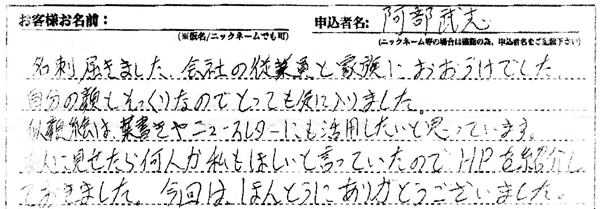 お客様お名前： 申込者名: 阿部武志
(※仮名/ニックネームでも可) (ニックネーム等の場合は確認の為、申込者名をご記載下さい)
名刺届きました、会社の従業員と家族におおうけでした
自分の顔とそっくりなのでとっても気に入りました。
似顔絵は葉書きやニュースレターにも活用したいと思っています。
友人に見せたら何人か私もほしいと言っていたのでHPを紹介し
ておきました。今回は、ほんとうにありがとうございました。